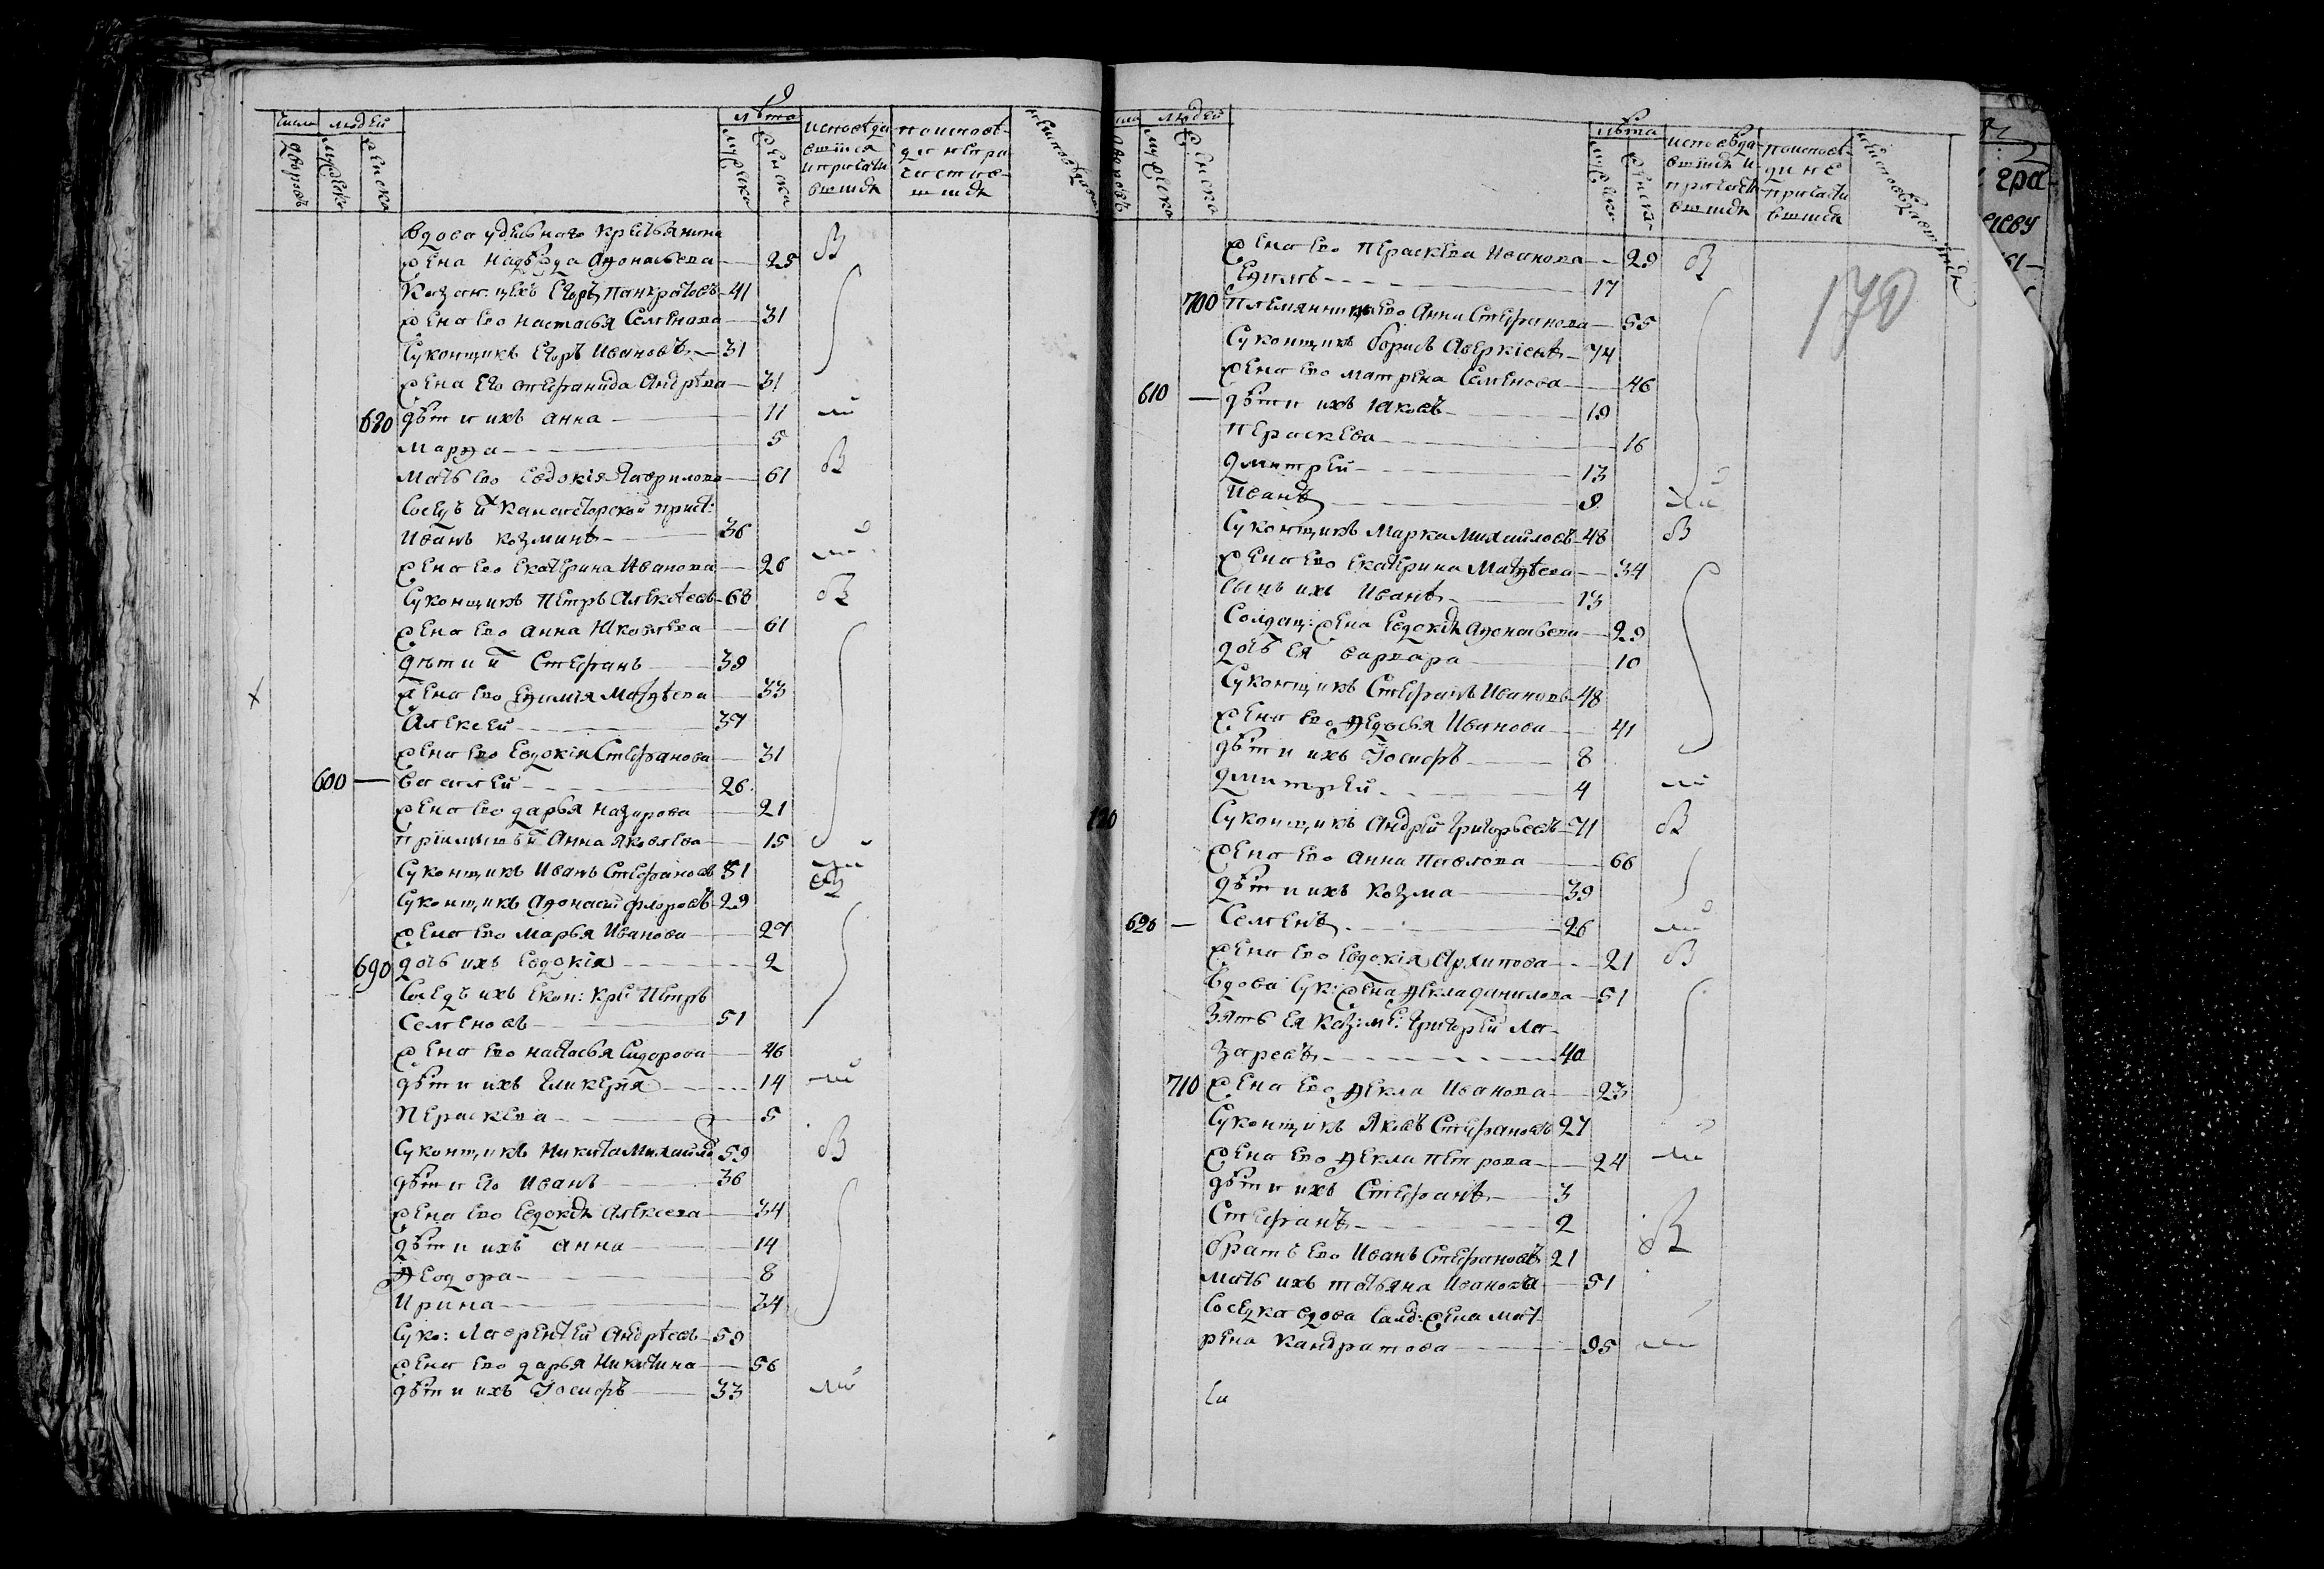 число людей лѣта
дворовъ мужеска женска мужеска женска исповѣдавшїися и причастившїися
вдова удѣльнаго крестьянина
жена Надѣжда Афонасьева 25
Казан: цехъ Егоръ Панкратовъ 41
жена ево Настасья Семенова 31
Суконщикъ Егоръ Ивановъ 31
жена Его Стефанида Андрѣева 31
680 дѣти ихъ Анна 11
Марфа 5
мать ево Евдокія Гаврилова 61
Иванъ Козминъ 36
жена ево Екатерина Иванова 26
Суконщикъ Петръ Алексѣевъ 68
жена ево Анна Яковлева 61
дѣти Стефанъ 39
жена ево Ефимія Матфѣева 33
Алексей 37
жена ево Евдокія Стефанова 31
600 Василей 26
жена ево Дарья Назарова 21
Анна Яковлева 15
Суконщикъ Иванъ Стефановъ 51
Суконщикъ Афонасій Флоровъ 29
жена ево Марья Иванова 27
690 дочь ихъ Евдокія 2
Соседъ ихъ Екон: кре: Петръ
Семеновъ 51
жена ево Настасья Сидорова 46
дѣти ихъ Гликерія 14
Перасковья 5
Суконщикъ Никита Михайло 59
дѣти его Иванъ 36
жена ево Евдокія Алексеева 34
дѣти ихъ Анна 14
Феодора 8
Ирина 34
Суко: Лаврентей Андрѣевъ 59
жена ево Дарья Никитина 56
дѣти ихъ Іосифъ 33
людей лѣта
мужеска женска мужеска женска исповѣдавшїися и причастившїися
170
жена ево Перасковья Иванова 29
Ефимъ 17
700 племянница ево Анна Стефанова 55
Суконщикъ Борисъ Аверкіевъ 74
жена ево Матрена Семенова 46
610 дѣти ихъ Іаковъ 19
Перасковья 16
Дмитрей 13
Иванъ 9
Суконщикъ Марка Михайловъ 48
жена ево Екатерина Матфѣева 34
сынъ ихъ Иванъ 13
Солдац: жена Евдокія Афонасьева 29
дочь ея Варвара 10
Суконщикъ Стефанъ Ивановъ 48
жена ево Федосья Иванова 41
дѣти ихъ Іосифъ 8
Дмитрей 4
120 Суконщикъ Андрей Григорьевъ 71
жена ево Анна Павлова 66
дѣти ихъ Козма 39
620 Семенъ 26
жена ево Евдокія Архипова 21
вдова сук: жена Фекла Данилова 51
Зять ея Каз: ме: Григорей Ла-
заревъ 40
710 жена ево Фекла Иванова 23
Суконщикъ Яковъ Стефановъ 27
жена ево Фекла Петрова 24
дѣти ихъ Стефанъ 3
Стефанъ 2
братъ ево Иванъ Стефановъ 21
мать ихъ Татьяна Иванова 51
Соседка вдова салд: жена Мат-
рена Кандратова 95
Си